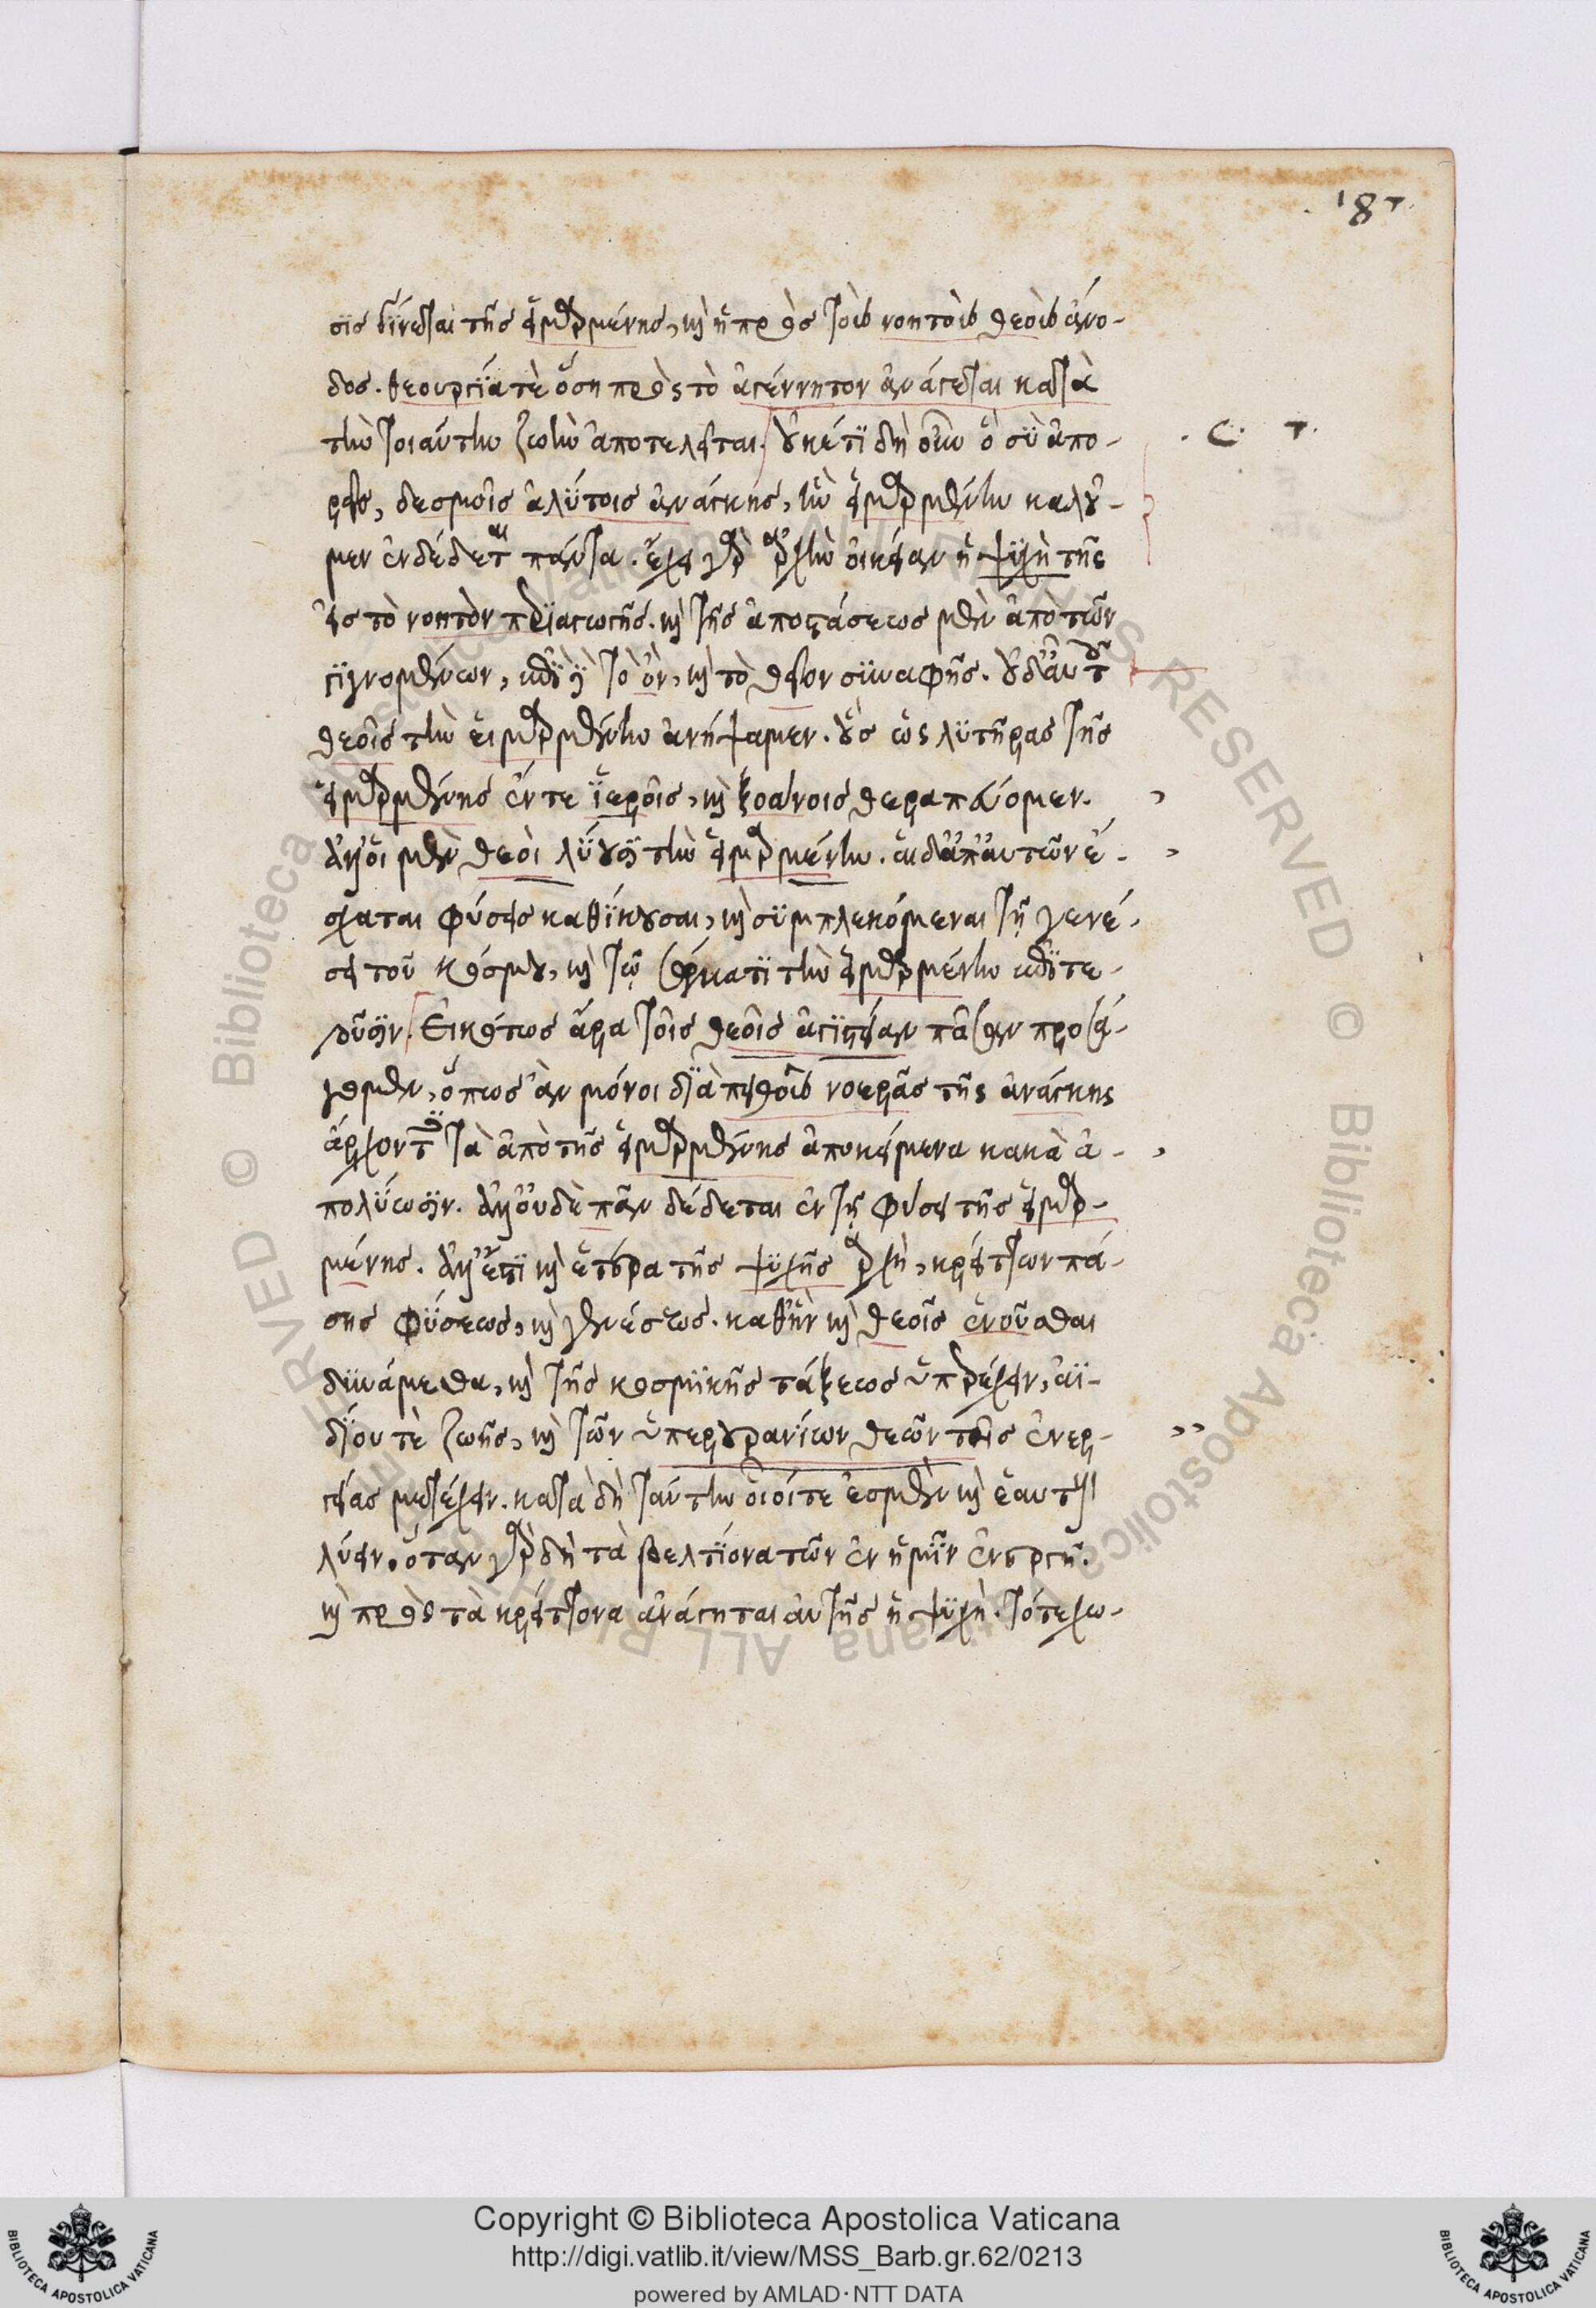 187
σις γίνεται τῆς εἱμαρμένης, καὶ ἡ πρὸς τοὺς νοητοὺς θεοὺς ἄνο-
δος. θεουργία τὲ ὅση πρὸς τὸ ἀγέννητον ἀνάγεται κατὰ
τὴν τοιαύτην ζωὴν ἀποτελεῖται. οὐκέτι δὴ οὖν ὃ σὺ ἀπο-
ρεῖς, δεσμοῖς ἀλύτοις ἀνάγκης, ἣν εἱμαρμένην καλοῦ-
μεν ἐνδέδεται πάντα. ἔχει γὰρ ἀρχὴν οἰκείαν ἡ ψυχὴ τῆς
εἰς τὸ νοητὸν περιαγωγῆς. καὶ τῆς ἀποστάσεως μὲν ἀπὸ τῶν
γιγνομένων, ἐπὶ δὲ τὸ ὂν, καὶ τὸ θεῖον συναφῆς. οὐδ' αὖ τοῖς
θεοῖς τὴν εἱμαρμένην ἀνήψαμεν. οὓς ὡς λυτῆρας τῆς
εἱμαρμένης ἔν τε ἱεροῖς, καὶ ξοάνοις θεραπεύομεν.
ἀλλ' οἱ μὲν θεοὶ λύουσι τὴν εἱμαρμένην. αἱ δ' ἀπ' αὐτῶν ἔ-
σχαται φύσεις καθήκουσαι, καὶ συμπλεκόμεναι τῇ γενέ-
σει τοῦ κόσμου, καὶ τῷ σώματι τὴν εἱμαρμένην ἐπιτε-
λοῦσιν. Εἰκότως ἄρα τοῖς θεοῖς ἁγιστείαν πᾶσαν προσά-
γομεν, ὅπως ἂν μόνοι διὰ πειθοῦς νοερᾶς τῆς ἀνάγκης
ἄρχοντες τὰ ἀπὸ τῆς εἱμαρμένης ἀποκείμενα κακὰ ἀ-
πολύωσιν. ἀλλ' οὐδὲ πᾶν δέδεται ἐν τῇ φύσει τῆς εἱμαρ-
μένης. ἀλλ' ἔστι καὶ ἑτέρα τῆς ψυχῆς ἀρχὴ, κρείττων πά-
σης φύσεως, καὶ γενέσεως. καθ' ἣν καὶ θεοῖς ἑνοῦσθαι
δυνάμεθα, καὶ τῆς κοσμικῆς τάξεως ὑπερέχειν, ἀϊ-
δίου τὲ ζωῆς, καὶ τῶν ὑπερουρανίων θεῶν τῆς ἐνερ-
γείας μετέχειν. κατὰ δὴ ταύτην οἷοί τε ἐσμὲν καὶ ἑαυτοὺς
λύειν. ὅταν γὰρ δὴ τὰ βελτίονα τῶν ἐν ἡμῖν ἐνεργῇ.
καὶ πρὸς τὰ κρείττονα ἀνάγηται αὐτῆς ἡ ψυχὴ. τότε χω-
Copyright © Biblioteca Apostolica Vaticana
http://digi.vatlib.it/view/MSS_Barb.gr.62/0213
powered by AMLAD·NTT DATA
BIBLIOTECA APOSTOLICA VATICANA
BIBLIOTECA APOSTOLICA VATICANA